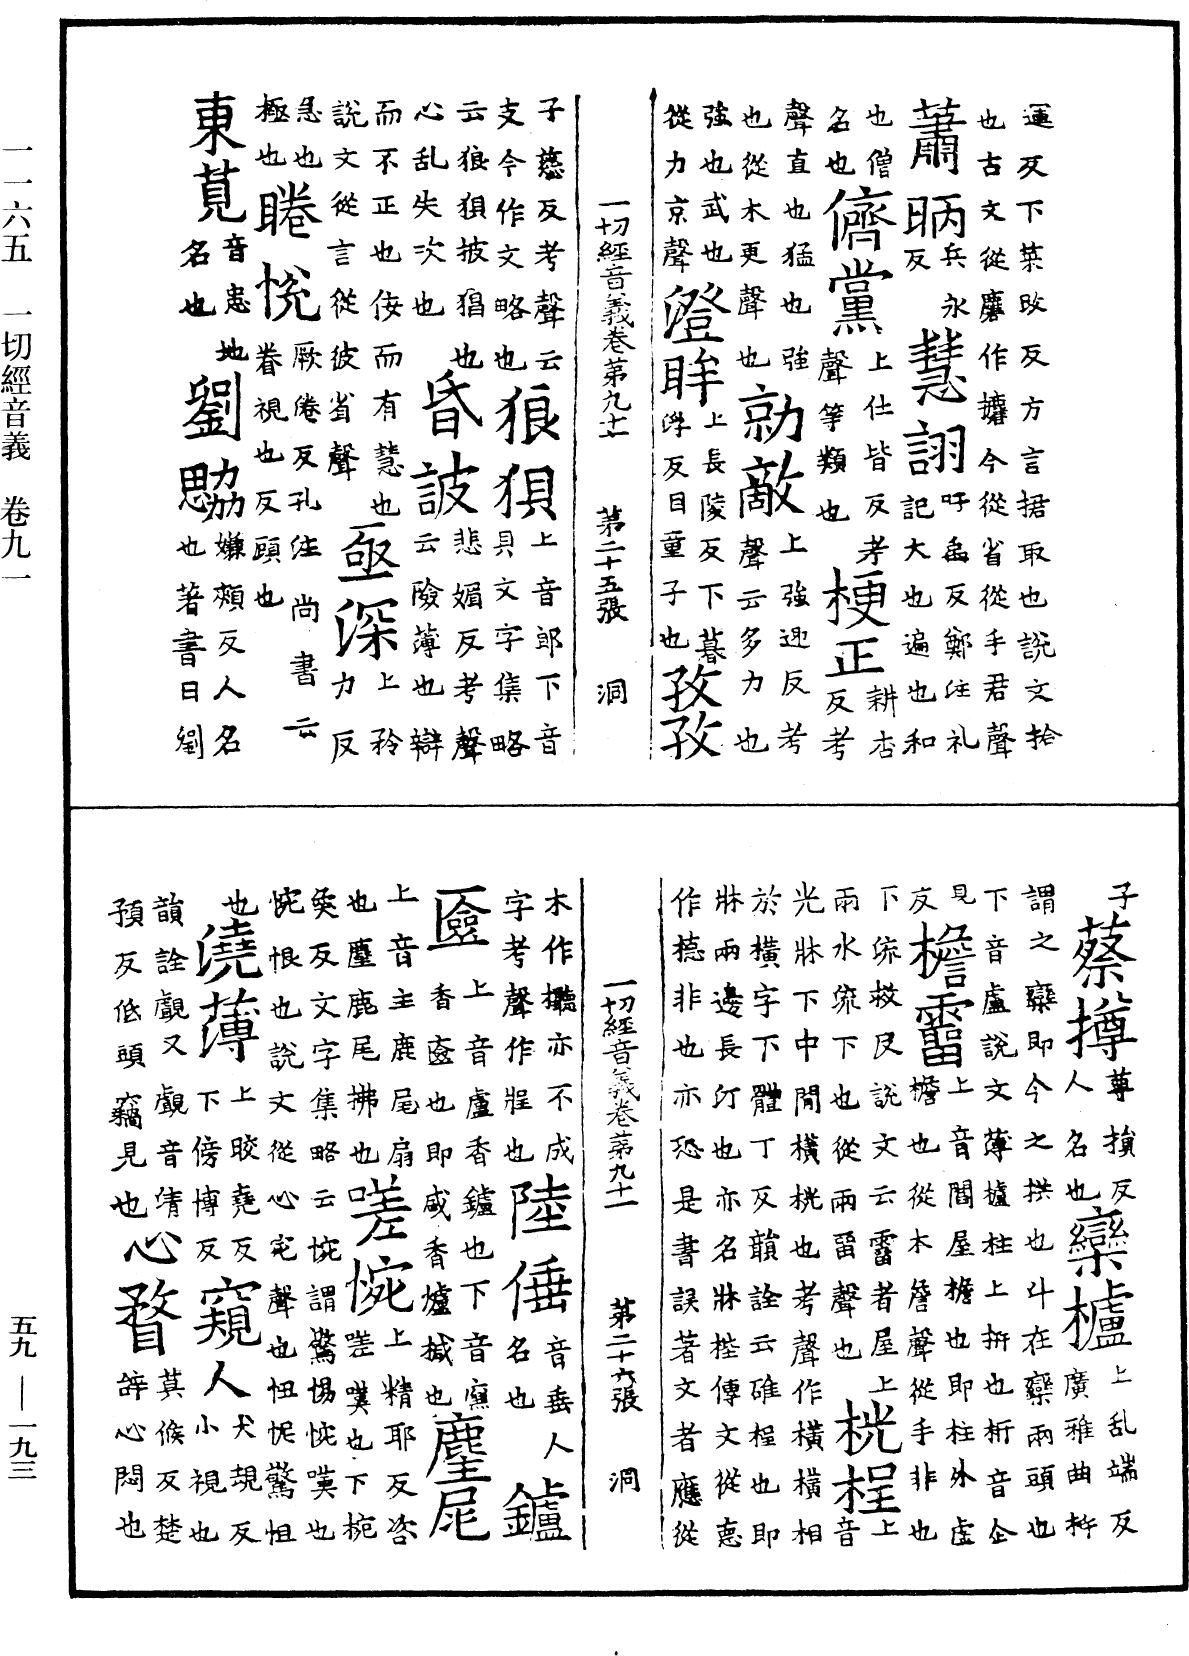 運反下葉攺反方言捃取也說文拾
也古文從麏作攟今從省從手君聲
蕭昞兵永反慧詡吁禹反鄭注礼記大也遍也和
也僧名也儕黨上仕皆反考聲等類也梗正耕杏反考
聲直也猛也強也從木更聲也勍敵上強迎反考聲云多力也
強也武也從力京聲澄眸上長陵反下暮浮反目童子也孜孜
一切經音義卷第九十一 第二十五張 洞
子慈反考聲云支今作文略也狼狽上音郎下音貝文字集略
云狼狽披猖也心乱失次也昏詖悲媚反考聲云險薄也辯
而不正也佞而有慧也說文從言從彼省聲亟深上矜力反
急也極也睠悅厥倦反孔注尚書云眷視也反顧也
東莧音患地名也劉勰嫌頰反人名也著書日劉
子蔡撙尊損反人名也欒櫨上乱端反廣雅曲枅
謂之欒即今之拱也斗在欒兩頭也
下音盧說文薄櫨柱上枅也枅音企
見反檐霤上音閻屋檐也即柱外虛檐也從木詹聲從手非也
下流救反說文云霤者屋上
兩水流下也從雨留聲也桄桯音上
光牀下中閒橫桄也考聲作橫橫相
於橫字下體丁反韻詮云碓桯也即
牀兩邊長汀也亦名牀桯傳文從悳
作㯖非也亦恐是書誤著文者應從
一切經音義卷第九十一 第二十六張 洞
木作櫷亦不成字考聲作桯也陸倕音垂人名也鑪
匳上音盧香鑪也下音廉香匳也即咸香爐椷也麈尾
上音主鹿尾扇也麈鹿尾拂也嗟惋上精耶反咨嗟嘆也下椀
奐反文字集略云惋謂驚惕惋嘆也
惋恨也說文從心宛聲也忸怩驚怛
也澆薄上咬堯反下傍博反窺人犬規反小視也
韻詮覰又覰音清預反低頭竊見也心瞀莫候反楚辞心悶也
一一六五 一切經音義 卷九一
五九—一九三